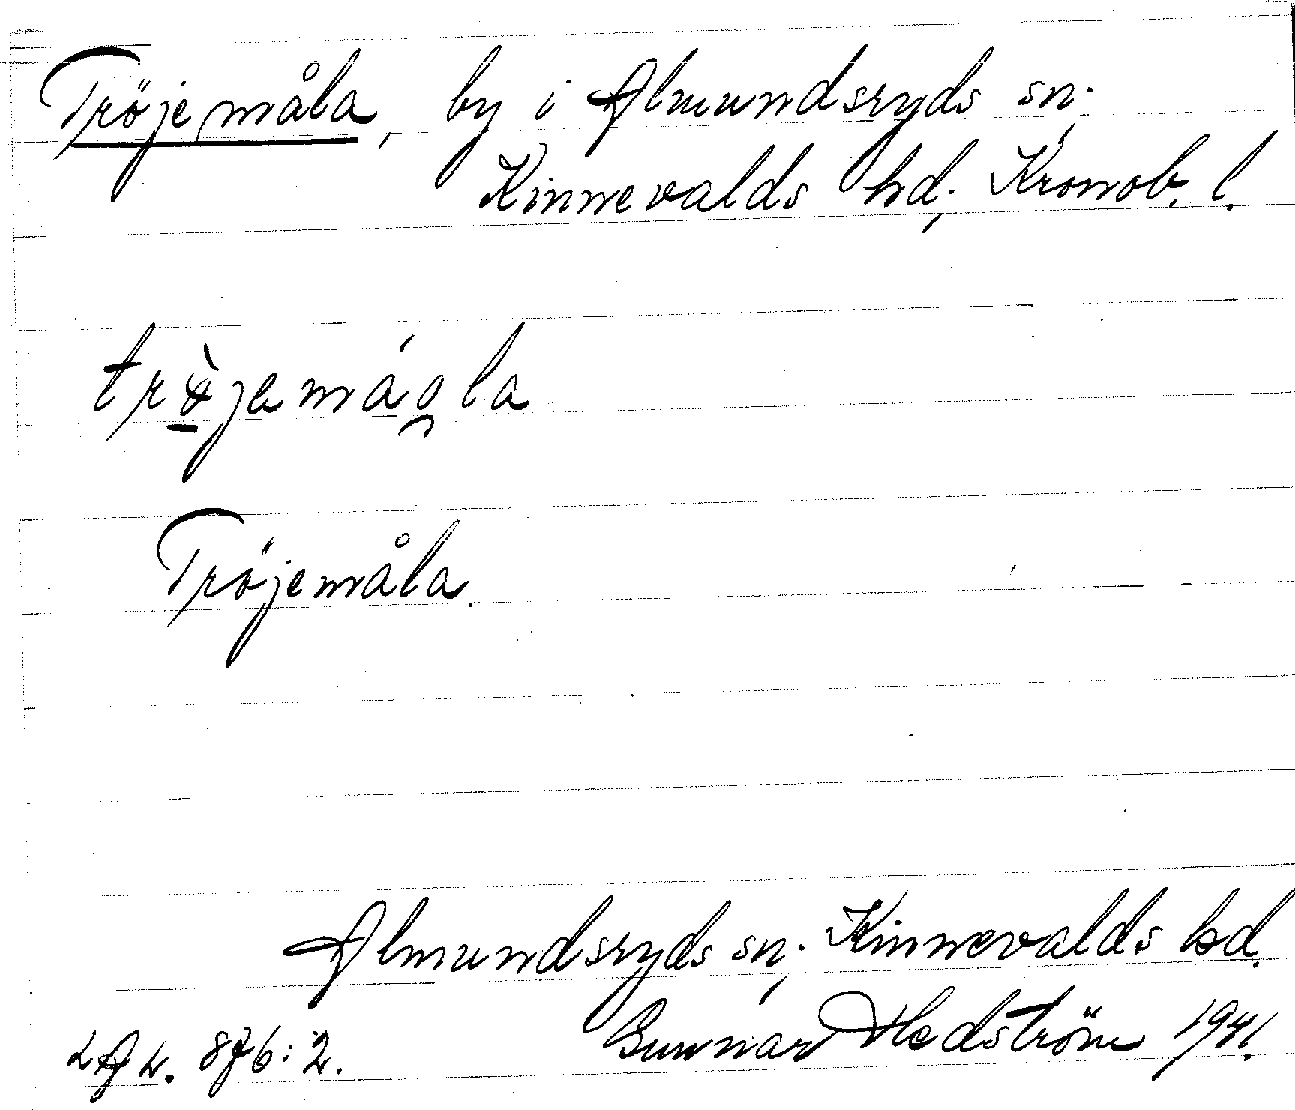 Tröjemåla, by i Almundsryds sn.
Kinnevalds hd, Kronob. l.
trö̀jemáo̯la
Tröjemåla.
Almundsryds sn, Kinnevalds hd.
Gunnar Hedström 1941.
876:2.